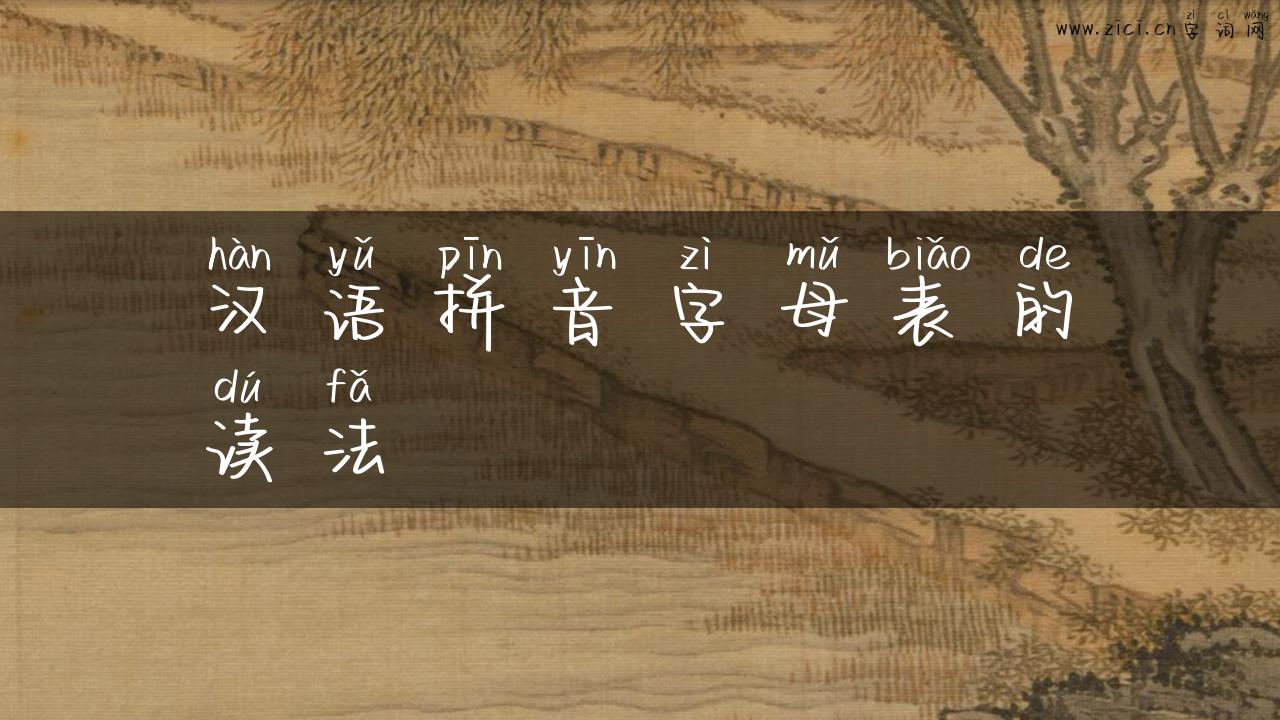 zì cí wǎng
www.zici.cn字词网
hàn yǔ pīn yīn zì mǔ biǎo de
汉语拼音字母表的
dú fǎ
读法